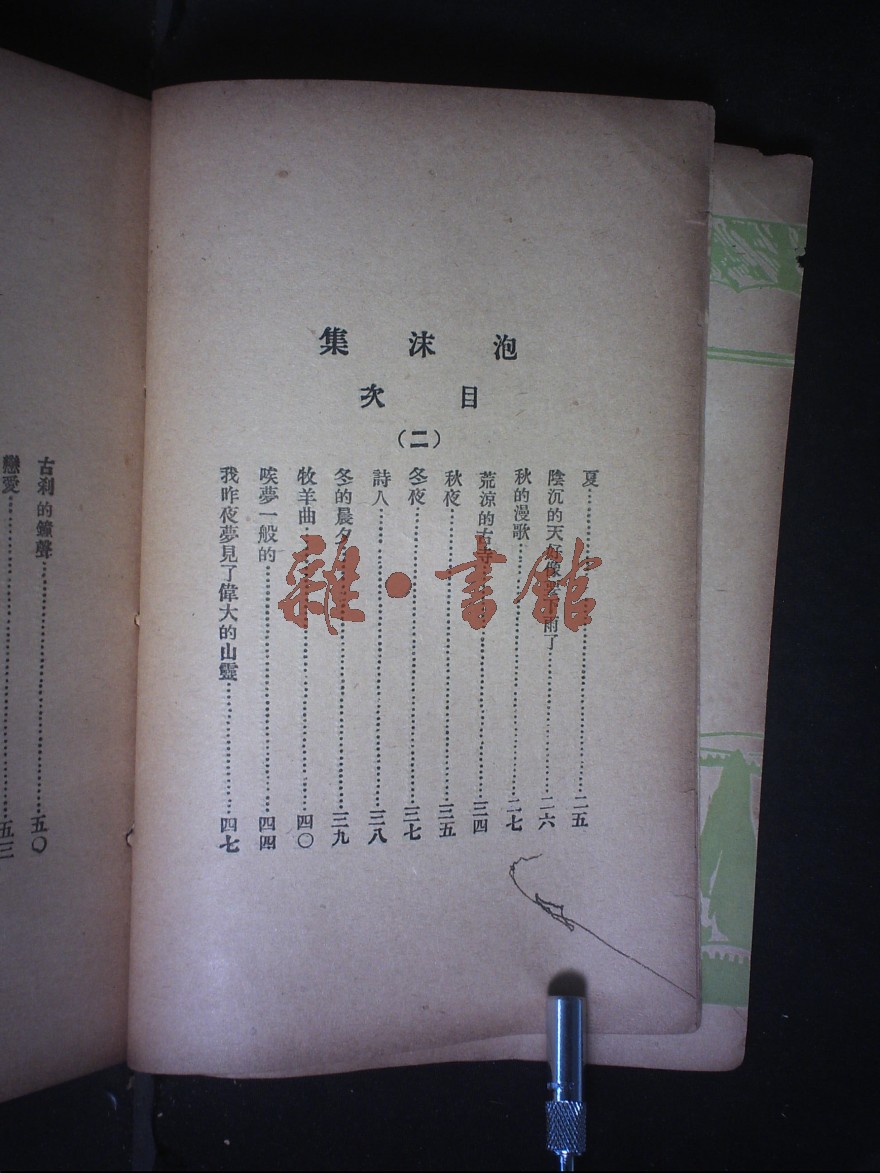 泡沫集
目次
(二)
夏……二五
陰沉的天好像要下雨了……二六
秋的漫歌……二七
荒涼的古寺……三四
秋夜……三五
冬夜……三七
詩人……三八
冬的晨夕……三九
牧羊曲……四〇
唉夢一般的……四四
我昨夜夢見了偉大的山靈……四七
古刹的鐘聲……五〇
戀愛……五三
雜·書館